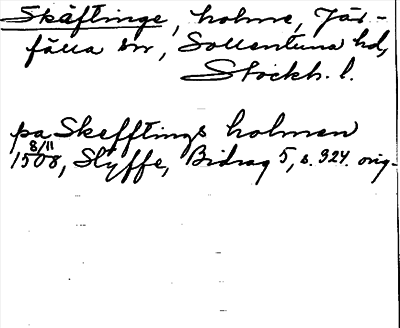 Skäftinge, holme, Jär-
fälla sn, Sollentuna hd,
Stockh. l.
pa Skefftings holmen
8/11
1508, Styffe, Bidrag 5, s. 324. orig.